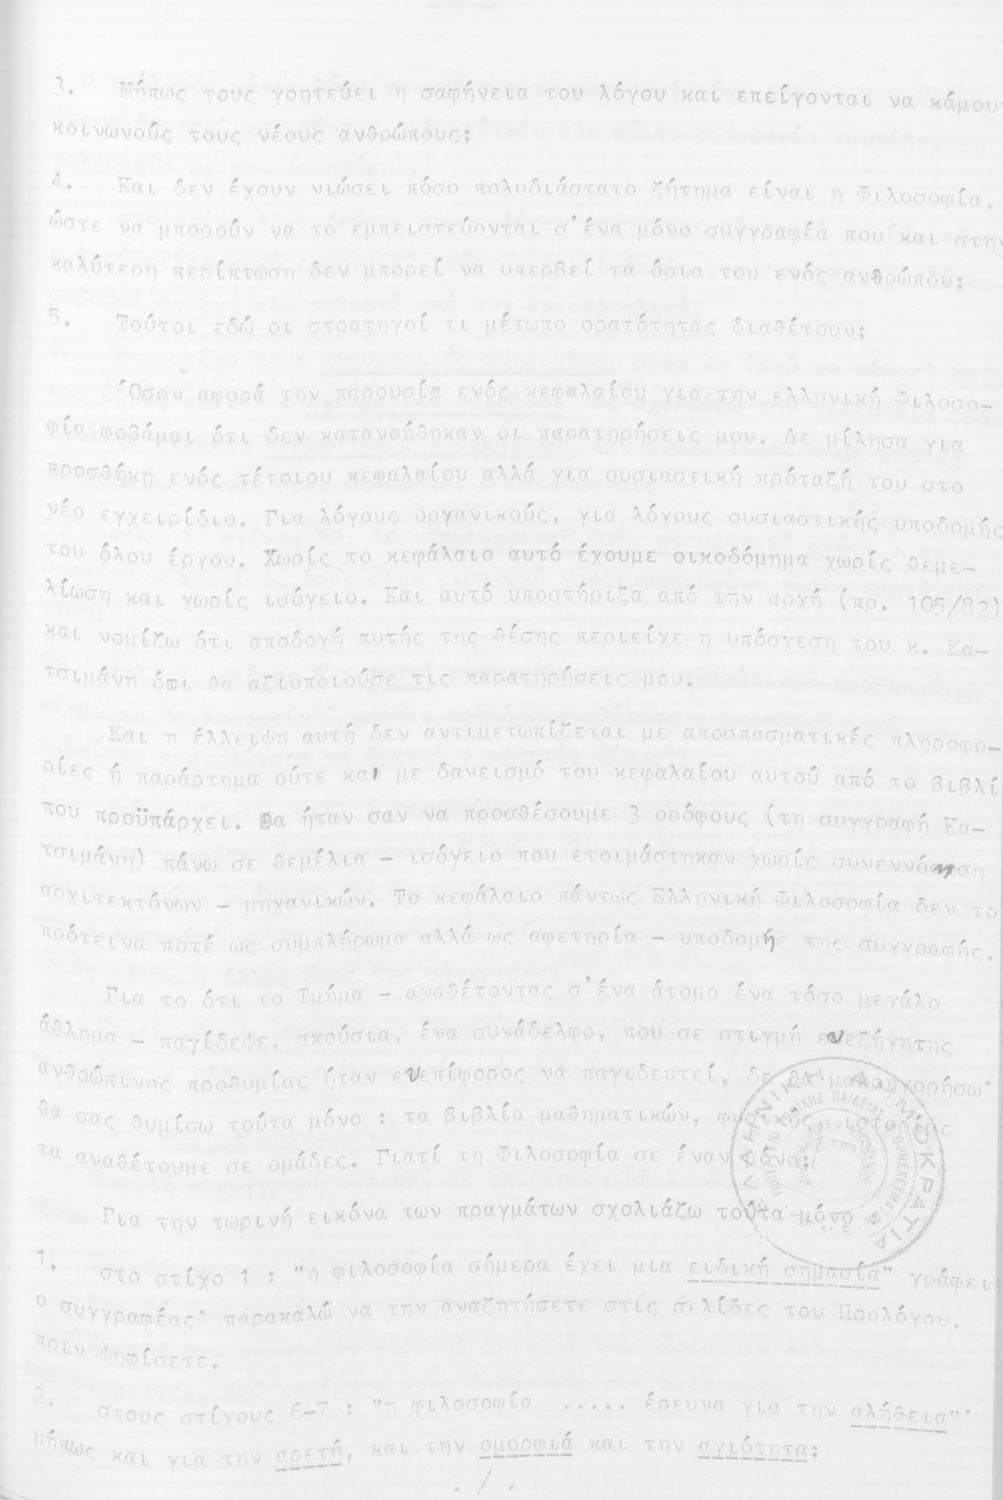 3. Μήπως τους γοητεύει η σαφήνεια του λόγου και επείγονται να κάμουν
κοινωνούς τους νέους ανθρώπους;
4. Και δεν έχουν νιώσει πόσο πολυδιάστατο ζήτημα είναι η Φιλοσοφία,
ώστε να μπορούν να το εμπειστεύονται σ'ένα μόνο συγγραφέα που και στην
καλύτερη περίπτωση δεν μπορεί να υπερβεί τα όρια του ενός ανθρώπου;
5. Τούτοι εδώ οι στρατηγοί τι μέτωπο ορατότητας διαθέτουν;
Όσον αφορά την παρουσία ενός κεφαλαίου για την ελληνική Φιλοσο-
φία φοβάμαι ότι δεν κατανοήθηκαν οι παρατηρήσεις μου. Δε μίλησα για
προσθήκη ενός τέτοιου κεφαλαίου αλλά για ουσιαστική πρόταξή του στο
νέο εγχειρίδιο. Για λόγους οργανικούς, για λόγους ουσιαστικής υποδομής
του όλου έργου. Χωρίς το κεφάλαιο αυτό έχουμε οικοδόμημα χωρίς θεμε-
λίωση και χωρίς ισόγειο. Και αυτό υποστήριξα από την αρχή (πρ. 105/82)
και νομίζω ότι αποδοχή αυτής της θέσης περιείχε η υπόσχεση του κ. Κα-
τσιμάνη ότι θα αξιοποιούσε τις παρατηρήσεις μου.
Και η έλλειψη αυτή δεν αντιμετωπίζεται με αποσπασματικές πληροφο-
ρίες ή παράρτημα ούτε και με δανεισμό του κεφαλαίου αυτού από το βιβλί
που προϋπάρχει. Θα ήταν σαν να προσθέσουμε 3 ορόφους (τη συγγραφή Κα-
τσιμάνη) πάνω σε θεμέλια - ισόγειο που ετοιμάστηκαν χωρίς συνεννόηση
αρχιτεκτόνων - μηχανικών. Το κεφάλαιο πάντως Ελληνική Φιλοσοφία δεν το
πρότεινα ποτέ ως συμπλήρωμα αλλά ως αφετηρία - υποδομή της συγγραφής.
Για το ότι το Τμήμα - αναθέτοντας σ'ένα άτομο ένα τόσο μεγάλο
άθλημα - παγίδεψε, ακούσια, ένα συνάδελφο, που σε στιγμή ανεξήγητης
ανθρώπινης προθυμίας ήταν ευεπίφορος να παγιδευτεί, δε θα μακρυγορήσω·
θα σας θυμίσω τούτα μόνο : τα βιβλία μαθηματικών, φυσικής, ιστορίας
τα αναθέτουμε σε ομάδες. Γιατί τη Φιλοσοφία σε έναν μόνο;
Για την τωρινή εικόνα των πραγμάτων σχολιάζω τούτα μόνο
1. στο στίχο 1 : "η φιλοσοφία σήμερα έχει μια ειδική σημασία" γράφει
ο συγγραφέας· παρακαλώ να την αναζητήσετε στις σελίδες του Προλόγου,
πριν ψηφίσετε.
2. στους στίχους 6-7 : "η φιλοσοφία ..... έρευνα για την αλήθεια"·
μήπως και για την αρετή, και την ομορφιά και την αγιότητα;
./.
ΕΛΛΗΝΙΚΗ ΔΗΜΟΚΡΑΤΙΑ